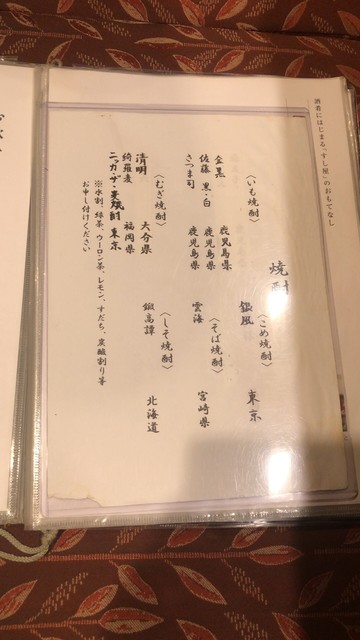 酒肴にはじまる「すし屋」のおもてなし
焼酎
〈いも焼酎〉
金黒 鹿児島県
佐藤 黒・白 鹿児島県
さつま司 鹿児島県
〈むぎ焼酎〉
清明 大分県
綺羅麦 福岡県
東京
※水割、緑茶、ウーロン茶、レモン、すだち、炭酸割り等
お申し付けください
〈こめ焼酎〉
銀風 東京
〈そば焼酎〉
雲海 宮崎県
〈しそ焼酎〉
鍛高譚 北海道